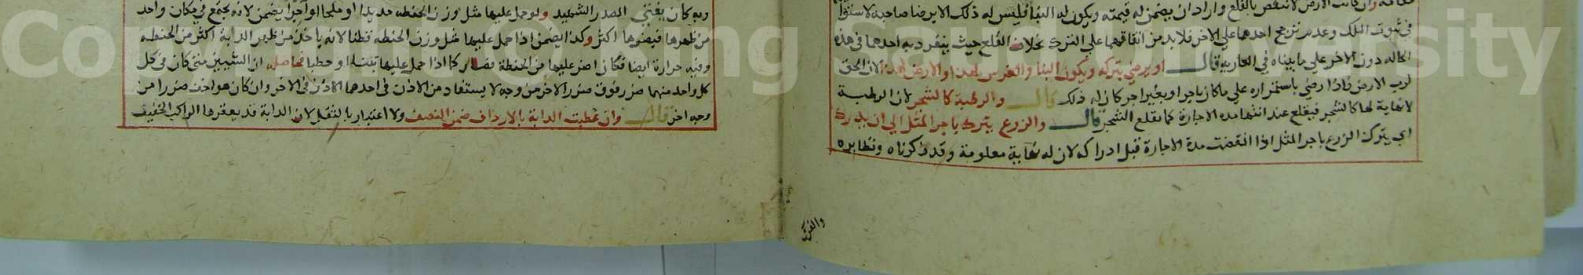 في ثبوت الملك وعدم ترجح احدهما على الاخر فلا بد من اتفاقهما على الترك بخلاف القلع حيث ينفرد به احدهما في هذه
الحالة دون الاخر على ما بيناه في العارية قال او يرضى بتركه ويكون البناء والغرس لهذا والارض لهذا لان الحق
لرب الارض فاذا رضي باستمراره على ما كان باجر او بغير اجر كان له ذلك قال والرطبة كالشجر لان الرطبة
لا نهاية لها كالشجر فيقلع عند انتهاء مدة الاجارة كما يقلع الشجر قال والزرع يترك باجر المثل الى ان يدرك
اي يترك الزرع باجر المثل اذا انقضت مدة الاجارة قبل ادراكه لان له نهاية معلومة وقد ذكرناه ونظايره
وبه كان يفتي الصدر الشهيد ولو حمل عليها مثل وزن الحنطة حديدا او ملحا او آجرا يضمن لانه يجتمع في مكان واحد
من ظهرها فيضرها اكثر وكذا يضمن اذا حمل عليها مثل وزن الحنطة قطنا لانه ياخذ من ظهر الدابة اكثر من الحنطة
وفيه حرارة ايضا فكان اضر عليها من الحنطة فصار كما اذا حمل عليها تبنا او حطبا فحاصله ان الشيئين متى كان في كل
كل واحد منهما ضرر فوق ضرر الاخر من وجه لا يستفاد من الاذن في احدهما الاذن في الاخر وان كان هو اخف ضررا من
وجه اخر قال وان عطبت الدابة بالارداف ضمن النصف ولا اعتبار بالثقل لان الدابة قد يعقرها الراكب الخفيف